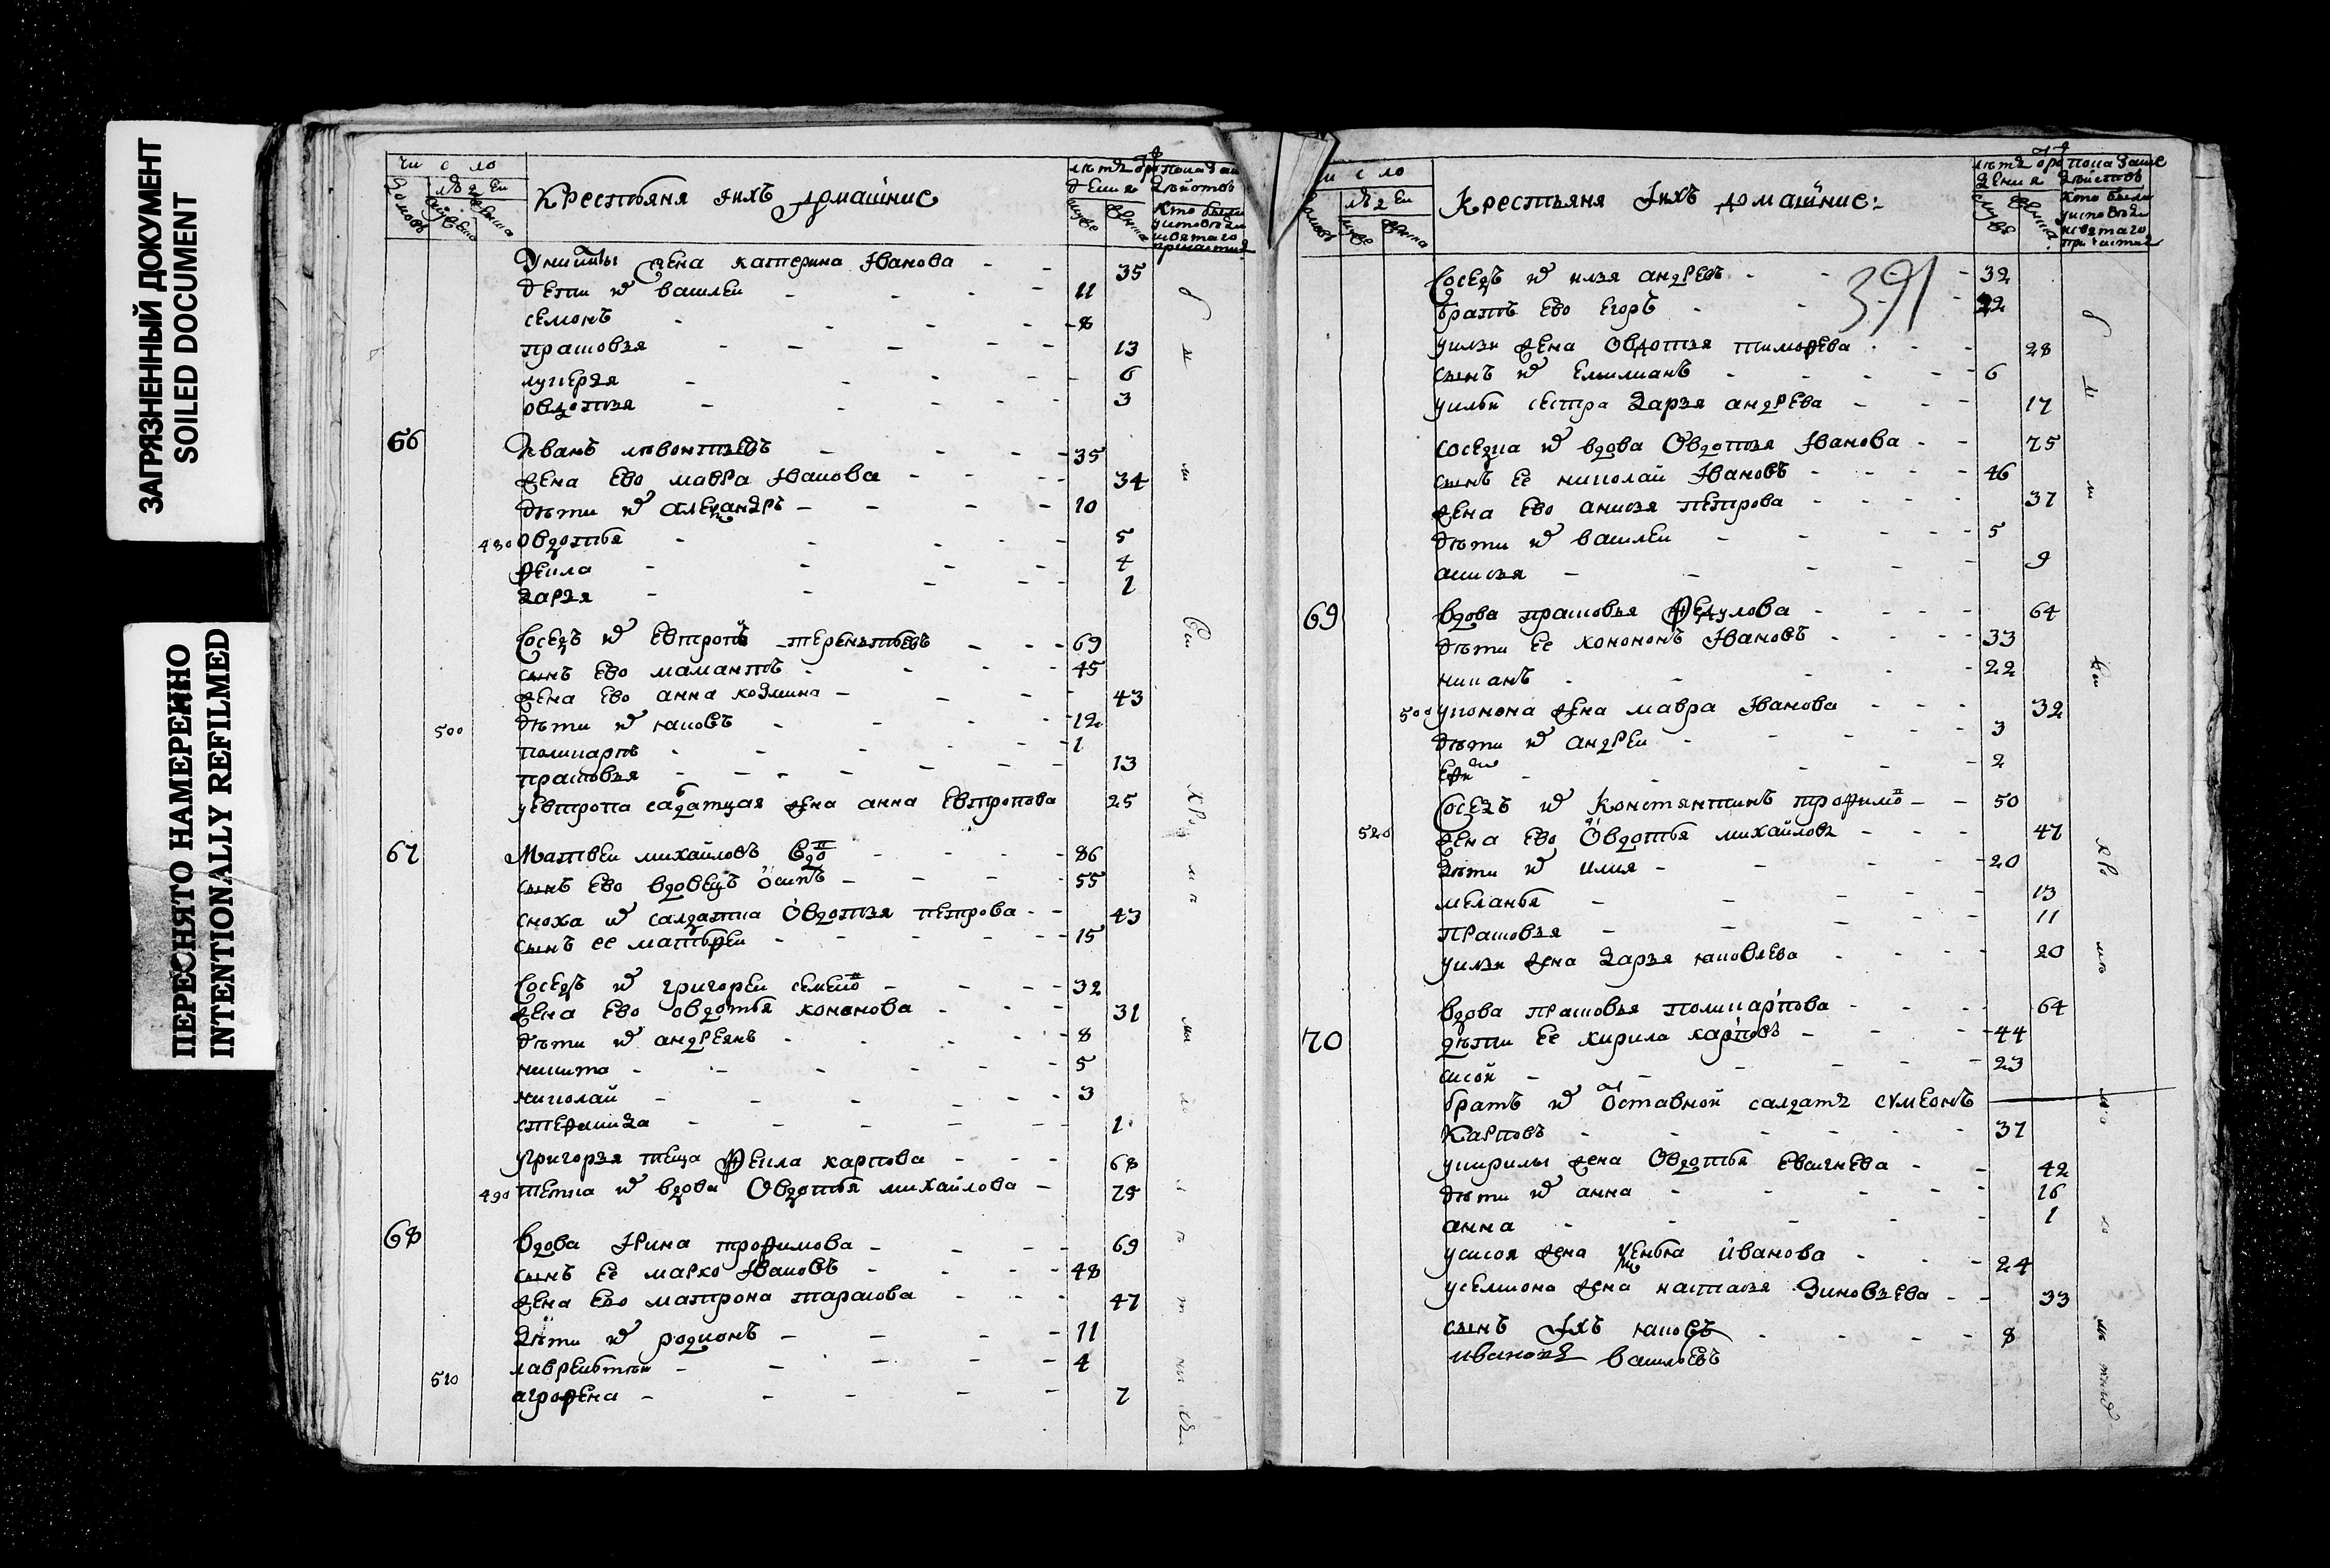 ЗАГРЯЗНЕННЫЙ ДОКУМЕНТ
SOILED DOCUMENT
ПЕРЕСНЯТО НАМЕРЕННО
INTENTIONALLY REFILMED
чи с ло
Крестьяня Iихъ домашние
дѣти ихъ василеи - 11
семонъ - 8
прасковья - 13
лукерья - 6
овдотья - 3
66 Iванъ лѣвонтьевъ - 35
жена ево мавра Iванова - 34
дѣти ихъ александръ - 10
430 овдотья - 5
фекла - 4
дарья - 1
Соседъ ихъ евтропъ терентьевъ - 69
сынъ ево мамантъ - 45
жена ево анна козмина - 43
500 дѣти ихъ яковъ - 12
поликарпъ - 1
прасковья - 13
уевтропа салдатцкая жена анна евтропова 25
67 Матвеи михаиловъ вдовъ - 86
сынъ ево вдовецъ осипъ - 55
сноха ихъ салдатка Овдотья петрова - 43
сынъ ее матвеи - 15
Соседъ ихъ григореи семеновъ - 32
жена ево овдотья кононова - 31
дѣти ихъ андреянъ - 8
никита - 5
николай - 3
стефанида - 1
угригорья теща Фекла карпова - 68
490 тетка ихъ вдова Овдотья михаилова - 75
68 Вдова Iрина трофимова - 69
сынъ ее марко Iвановъ - 48
жена ево матрона тарасова - 47
дѣти ихъ родионъ - 11
510 лаврентеи - 4
агрофена - 7
чи с ло
Крестьяня Iихъ домашние:
391
Соседъ ихъ илья андреевъ - 32
братъ ево егоръ - 22
уильи жена Овдотья тимофеева - 28
сынъ ихъ емилианъ - 6
уильи сестра дарья андреева - 17
соседка ихъ вдова Овдотья Iванова - 75
сынъ ее николай Iвановъ - 46
жена ево анисья петрова - 37
дѣти ихъ василеи - 5
анисья - 9
69 Вдова прасковья Федулова - 64
дѣти ее кононъ Iвановъ - 33
никанъ - 22
500 уконона жена мавра Iванова - 32
дѣти ихъ андреи - 3
ефимъ - 2
Соседъ ихъ Константинъ трофимовъ - 50
520 жена ево Овдотья михайлова - 47
дѣти ихъ илия - 20
меланья - 13
прасковья - 11
уильи жена дарья яковлева - 20
вдова прасковья поликарпова - 64
70 дѣти ее кирила карповъ - 44
сисой - 23
братъ ихъ отставной салдатъ симеонъ
Карповъ - 37
укирилы жена Овдотья евсигнеева - 42
дѣти ихъ анна - 16
анна - 1
усисоя жена иванова - 24
усемиона жена настасья Зиновьева - 33
сынъ Iхъ яковъ - 8
ивановъ васильевъ